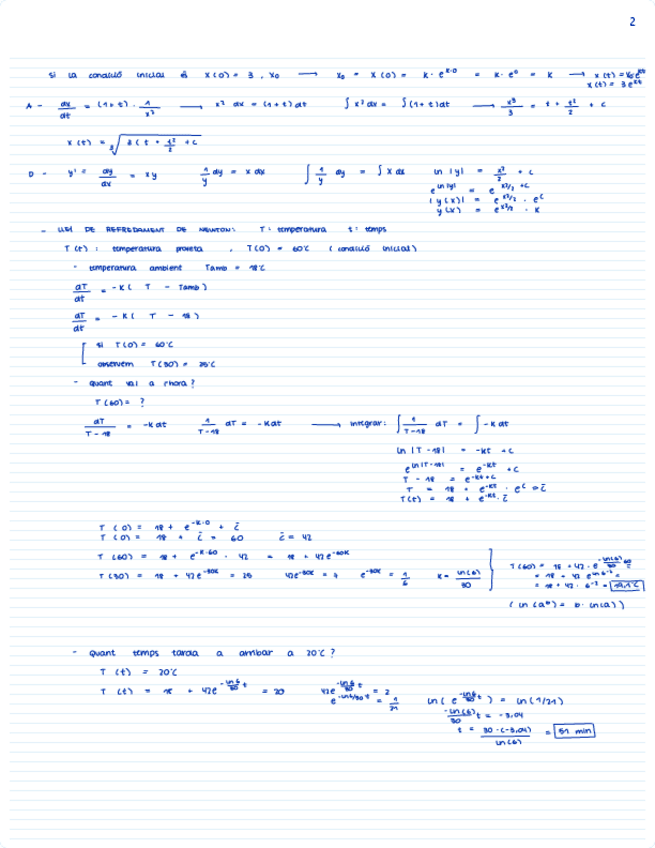 2
Si la condició inicial és x(0) = 3 , x₀ → x₀ = x(0) = k · e^(k·0) = k · e⁰ = k → x(t) = x₀e^(kt)
x(t) = 3e^(kt)
A - dx/dt = (1+t) · 1/x² → x² dx = (1+t)dt ∫x² dx = ∫(1+t)dt → x³/3 = t + t²/2 + c
x(t) = ³√(3(t + t²/2 + c
D - y' = dy/dx = xy 1/y dy = x dx ∫ 1/y dy = ∫ x dx ln |y| = x²/2 + c
e^(ln|y|) = e^(x²/2 + c)
|y(x)| = e^(x²/2) · e^c
y(x) = e^(x²/2) · k
- LLEI DE REFREDAMENT DE NEWTON: T: temperatura t: temps
T(t) : temperatura proveta , T(0) = 60°C (condició inicial)
- temperatura ambient Tamb = 18°C
dT/dt = -k( T - Tamb)
dT/dt = -k( T - 18)
si T(0) = 60°C
observem T(30) = 25°C
- quant val a l'hora?
T(60) = ?
dT/T-18 = -k dt 1/T-18 dT = -k dt → integrar: ∫ 1/T-18 dT = ∫ -k dt
ln |T-18| = -kt + c
e^(ln|T-18|) = e^(-kt) + c
T - 18 = e^(-kt+c)
T = 18 + e^(-kt) · e^c = c̄
T(t) = 18 + e^(-kt) · c̄
T(0) = 18 + e^(-k·0) + c̄
T(0) = 18 + c̄ = 60 c̄ = 42
T(60) = 18 + e^(-k·60) · 42 = 18 + 42e^(-60k)
T(30) = 18 + 42e^(-30k) = 25 42e^(-30k) = 7 e^(-30k) = 1/6 k = ln(6)/30
T(60) = 18 + 42 · e^(-ln(6)/30 · 60)
= 18 + 42 e^(ln 6⁻²) =
= 18 + 42 · 6⁻² = 19,1°C
(ln(aᵇ) = b · ln(a))
- quant temps tarda a arribar a 20°C?
T(t) = 20°C
T(t) = 18 + 42e^(-ln6/30 t) = 20 42e^(-ln6/30 t) = 2 ln( e^(-ln6/30 t) ) = ln(1/21)
e^(-ln6/30 t) = 1/21
-ln(6)/30 t = -3,04
t = 30·(-3,04)/ln(6) = 51 min